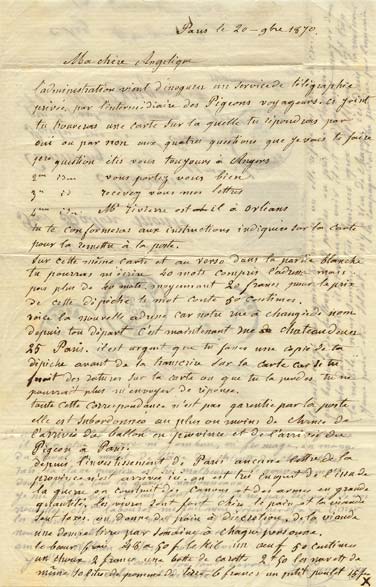 Paris le 20 - 9bre 1870.
Ma chère Angelique
l'administration vient d'
service de télégraphie
privée par l'intermédiaire des Pigeons voyageurs. ci joint
tu trouveras une carte sur la quelle tu répondras par
oui ou par non aux quatre questions que je vais te faire
1ere question êtes vous toujours à Angers
2me id— vous portez vous bien
3me id recevez vous mes lettres
4me id— Mr est il à Orléans
tu te conformeras aux instructions indiquées sur la carte
pour la remettre à la poste.
Sur cette même carte et au verso dans la partie blanche
tu pourras m'écrire 40 mots compris l'adresse mais
pas plus de 40 mots, moyennant 20 francs pour le prix
de cette dépêche le mot coute 50 centimes.
voici la nouvelle adresse car notre rue à changé de nom
depuis ton départ c'est maintenant rue de Chateaudun
25 Paris. il est urgent que tu fasses une copie de ta
dépêche avant de la transcrire sur la carte car si tu
fesait des ratures sur la carte ou que tu la perdes, tu ne
pourrait plus m'envoyer de réponse.
toute cette correspondance n'est pas garantie par la poste
elle est subordonnée au plus ou moins de chance de
l'arrivée du ballon en province et de l'arrivée du
Pigeon à Paris.
depuis l'investissement de Paris aucune lettre de la
province n'est arrivée ici. on est très de l'issue de
la guerre on construit des canons et des armes en grande
quantité, les vivres sont fort chers le pain et la viande
sont taxés. on donne du pain à discretion. de la viande
une demi livre par semaine à chaque personne.
le beurre frais 45 a 50 f. le kil. un œuf 50 centimes
un choux 2 francs une botte de carotte 2 50 les navets de
même, le litre de pomme de terre 1 franc, un petit poulet 15 f.